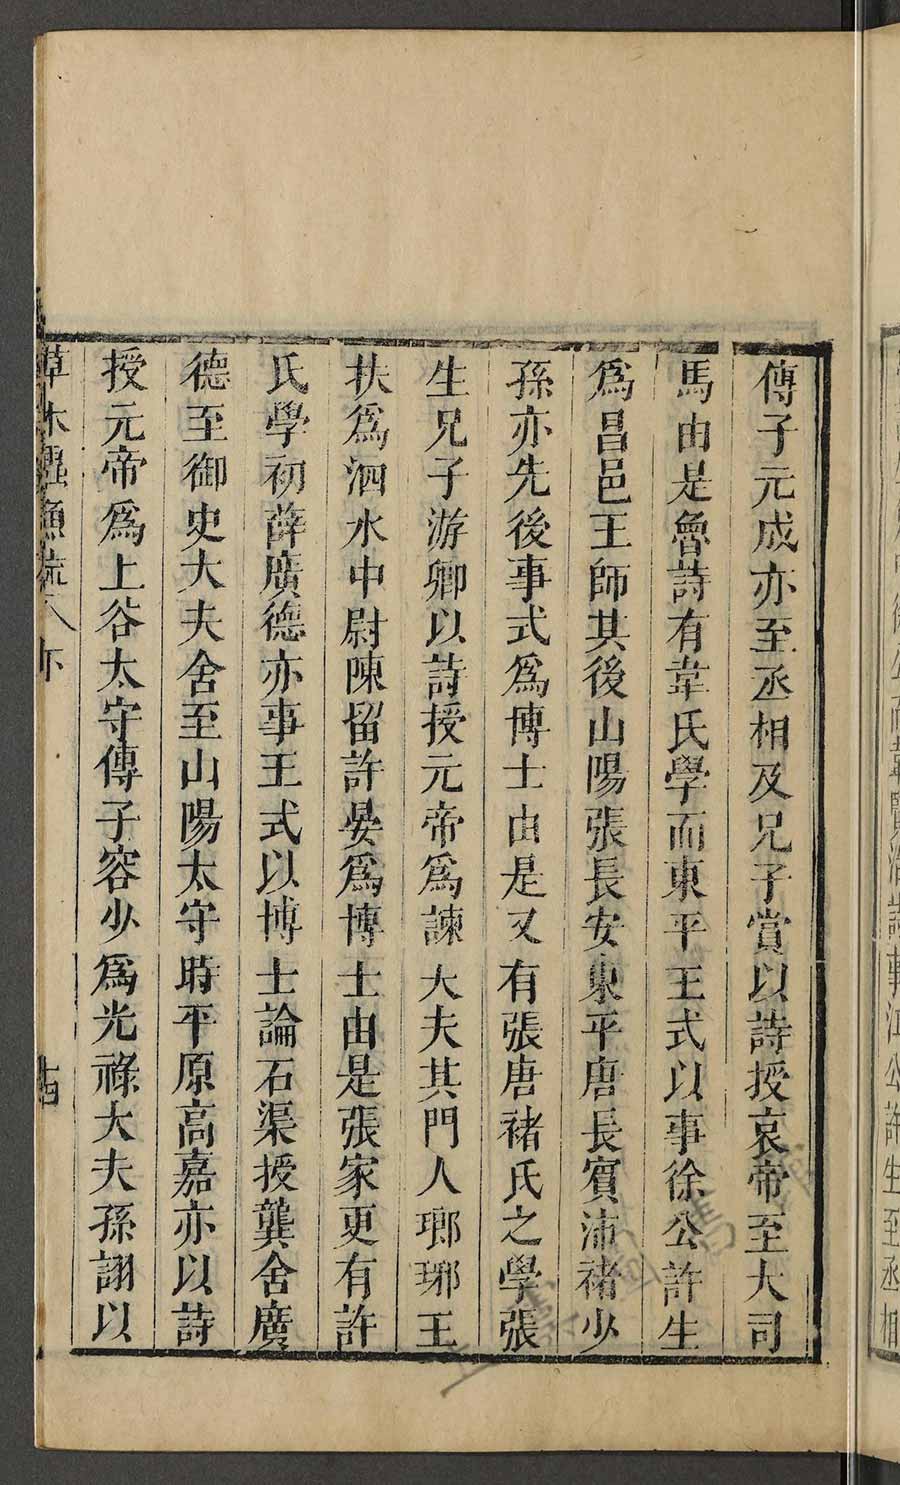 傳子元成亦至丞相及兄子賞以詩授哀帝至大司
馬由是魯詩有韋氏學而東平王式以事徐公許生
爲昌邑王師其後山陽張長安東平唐長賓沛褚少
孫亦先後事式爲博士由是又有張唐褚氏之學張
生兄子游卿以詩授元帝爲諫大夫其門人瑯琊王
扶爲泗水中尉陳留許晏爲博士由是張家更有許
氏學初薛廣德亦事王式以博士論石渠授龔舍廣
德至御史大夫舍至山陽太守時平原高嘉亦以詩
授元帝爲上谷太守傳子容少爲光祿大夫孫詡以
草木蟲魚疏 下
十四